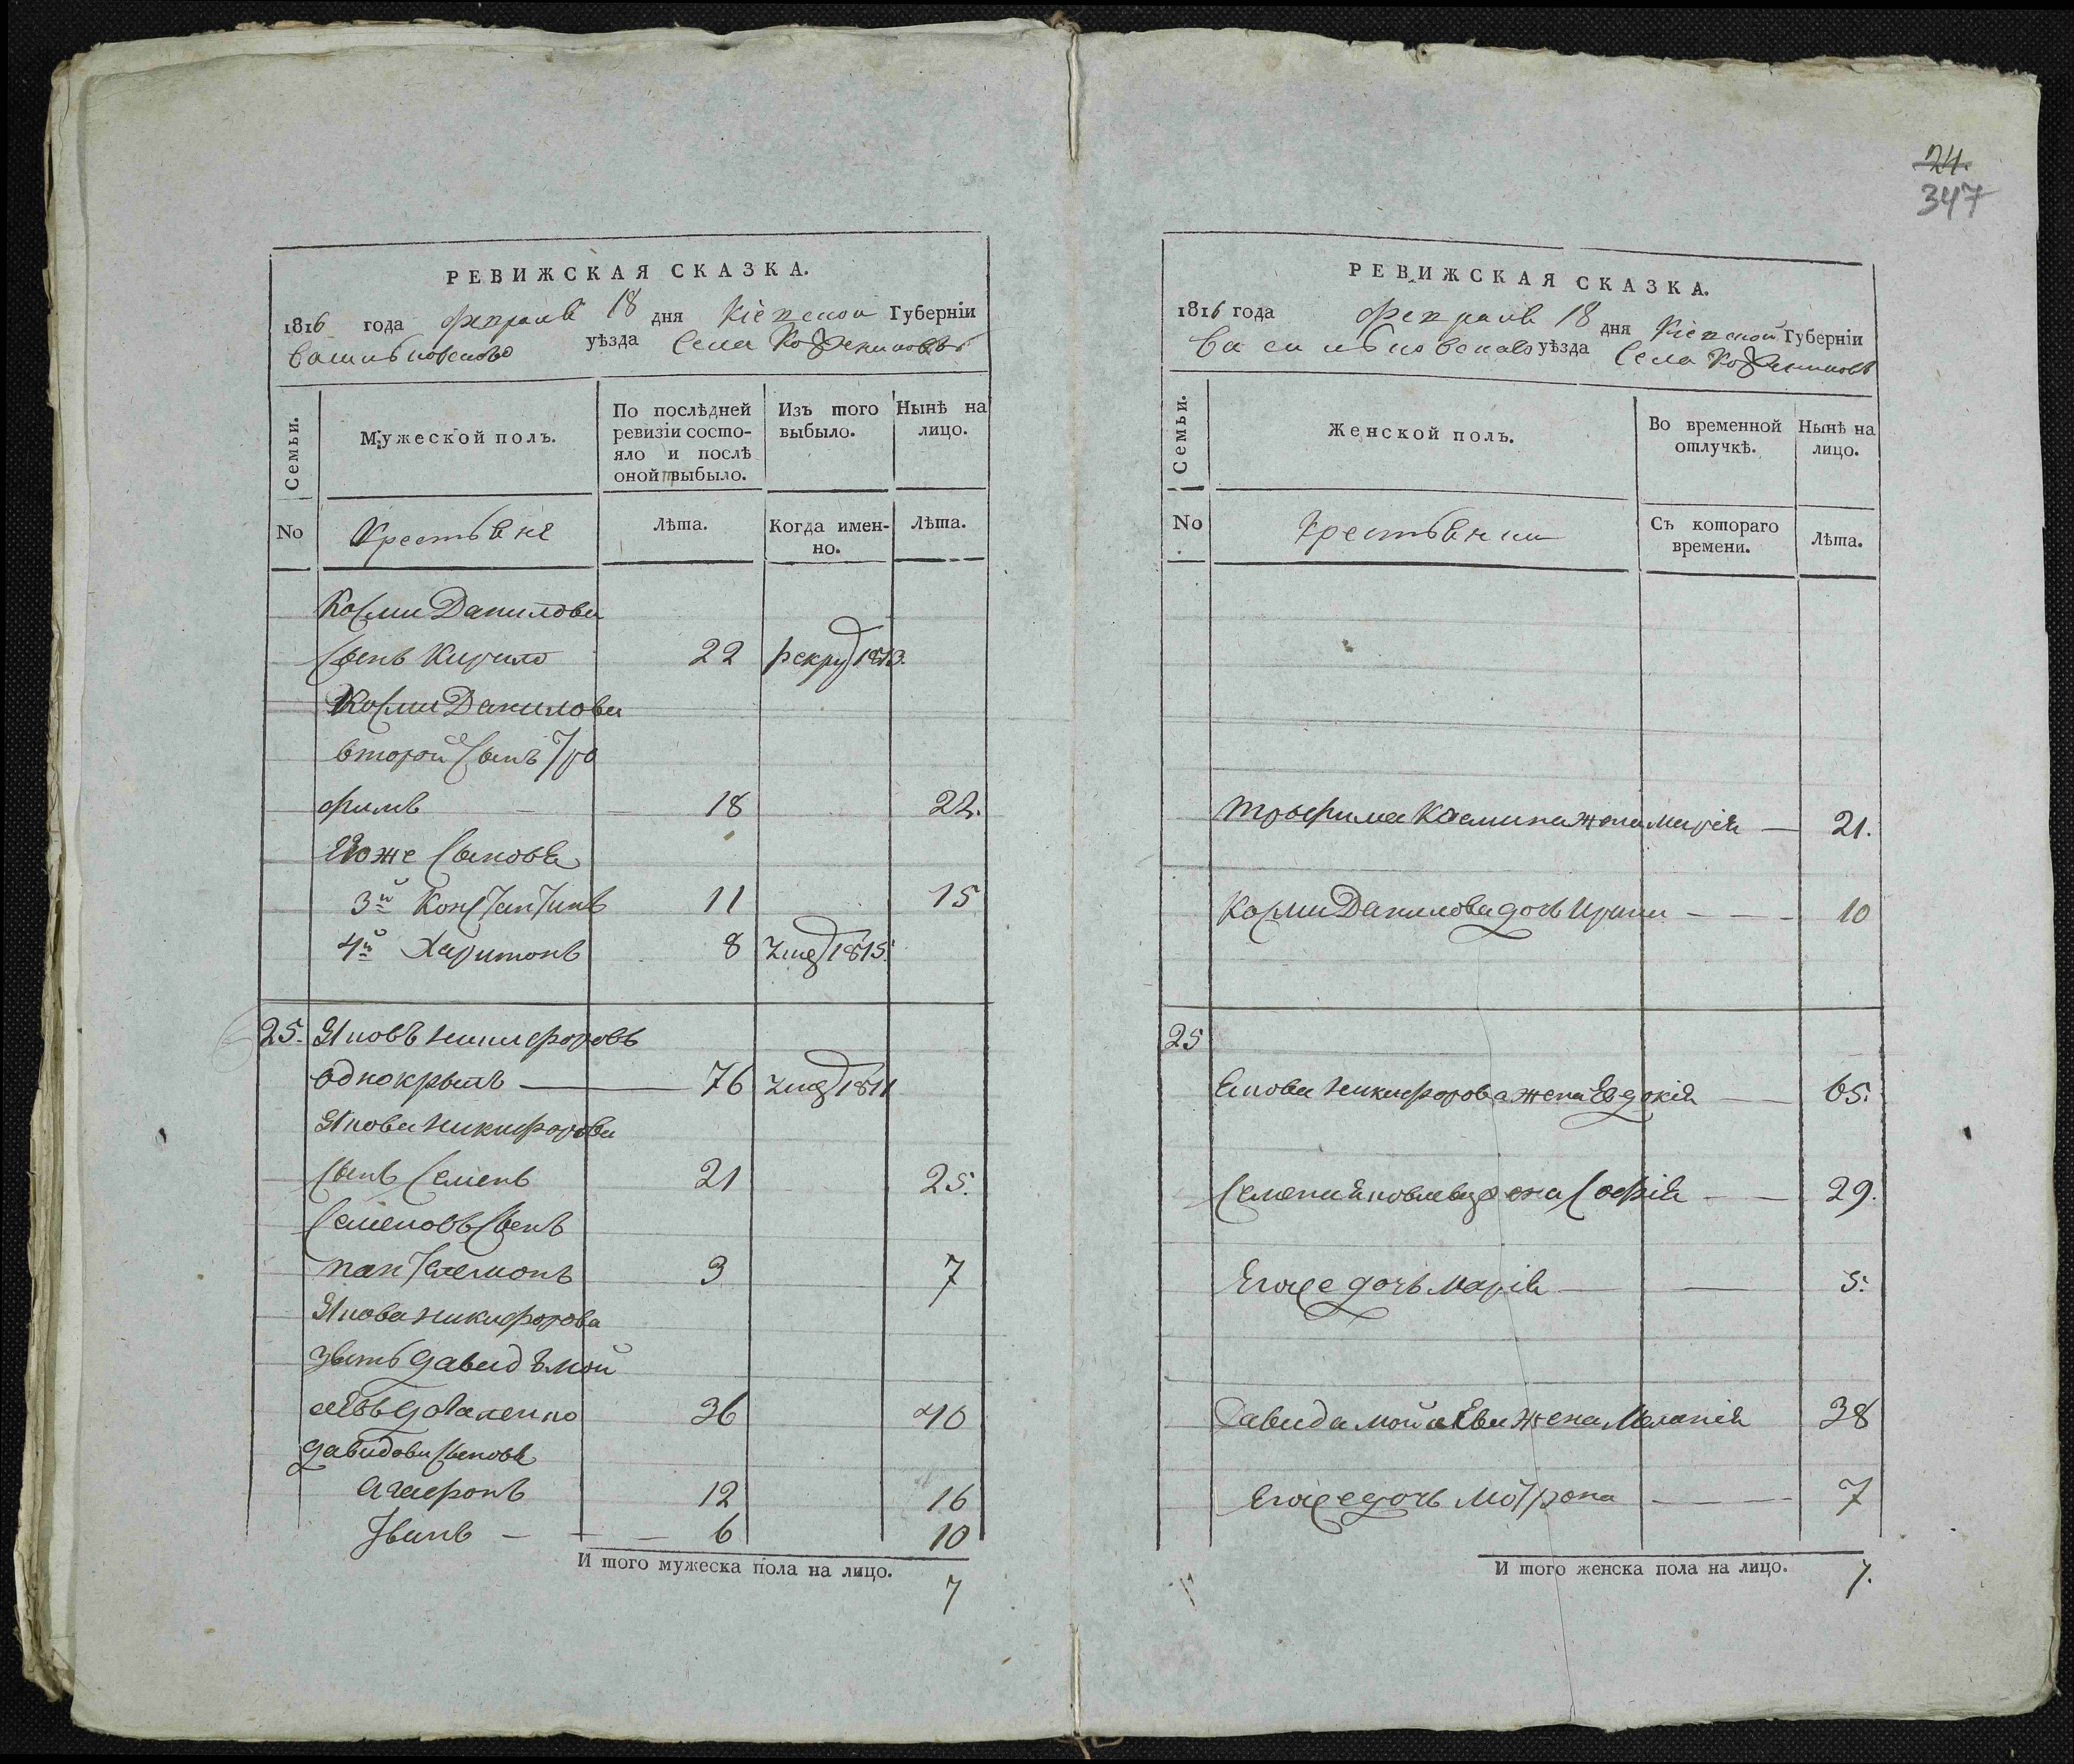 24.
347
РЕВИЖСКАЯ СКАЗКА.
1816 года февраля 18 дня Кіевской Губерніи
Василъковского уѣзда Села Кожениковъ
Семьи.
Мужеской полъ.
По послѣдней ревизіи состо-
яло и послѣ
оной выбыло.
Изъ того выбыло.
Нынѣ на лицо.
No
Крестьяне
Лѣта.
Когда имен-
но.
Лѣта.
Козми Данилова
Сынъ Кирило 22 рекру 1813.
Козми Данилова
второй Сынъ Тро
фимъ 18 22.
Егоже Сыновя
3й Константинъ 11 15
4й Харитонъ 8 умер 1815.
25. Яковъ Никифоровъ
Однокрылъ 76 умер 1811
Якова Никифорова
Сынъ Семенъ 21 25.
Семеновъ Сынъ
Пантелемонъ 3 7
Якова Никифорова
зять Давидъ Мой
сѣевъ 36 40
Давидови Сыновя
Агафонъ 12 16
Иванъ 6 10
И того мужеска пола на лицо. 7
РЕВИЖСКАЯ СКАЗКА.
1816 года февраля 18 дня Кіевской Губерніи
Васильковскаго уѣзда Села
Семьи.
Женской полъ.
Во временной отлучкѣ.
Нынѣ на лицо.
No
Крестьянки
Съ котораго времени.
Лѣта.
Трофима Касмина жена Марія 21.
Козми Данилова дочь Ирина 10
25
Якова Никифорова жена Евдокія 65.
Семена Яковлева жена Софія 29.
Егоже дочь Марія 5.
Давида Мойсѣева жена Меланія 38
Егоже дочь Мотрона 7
И того женска пола на лицо. 7.